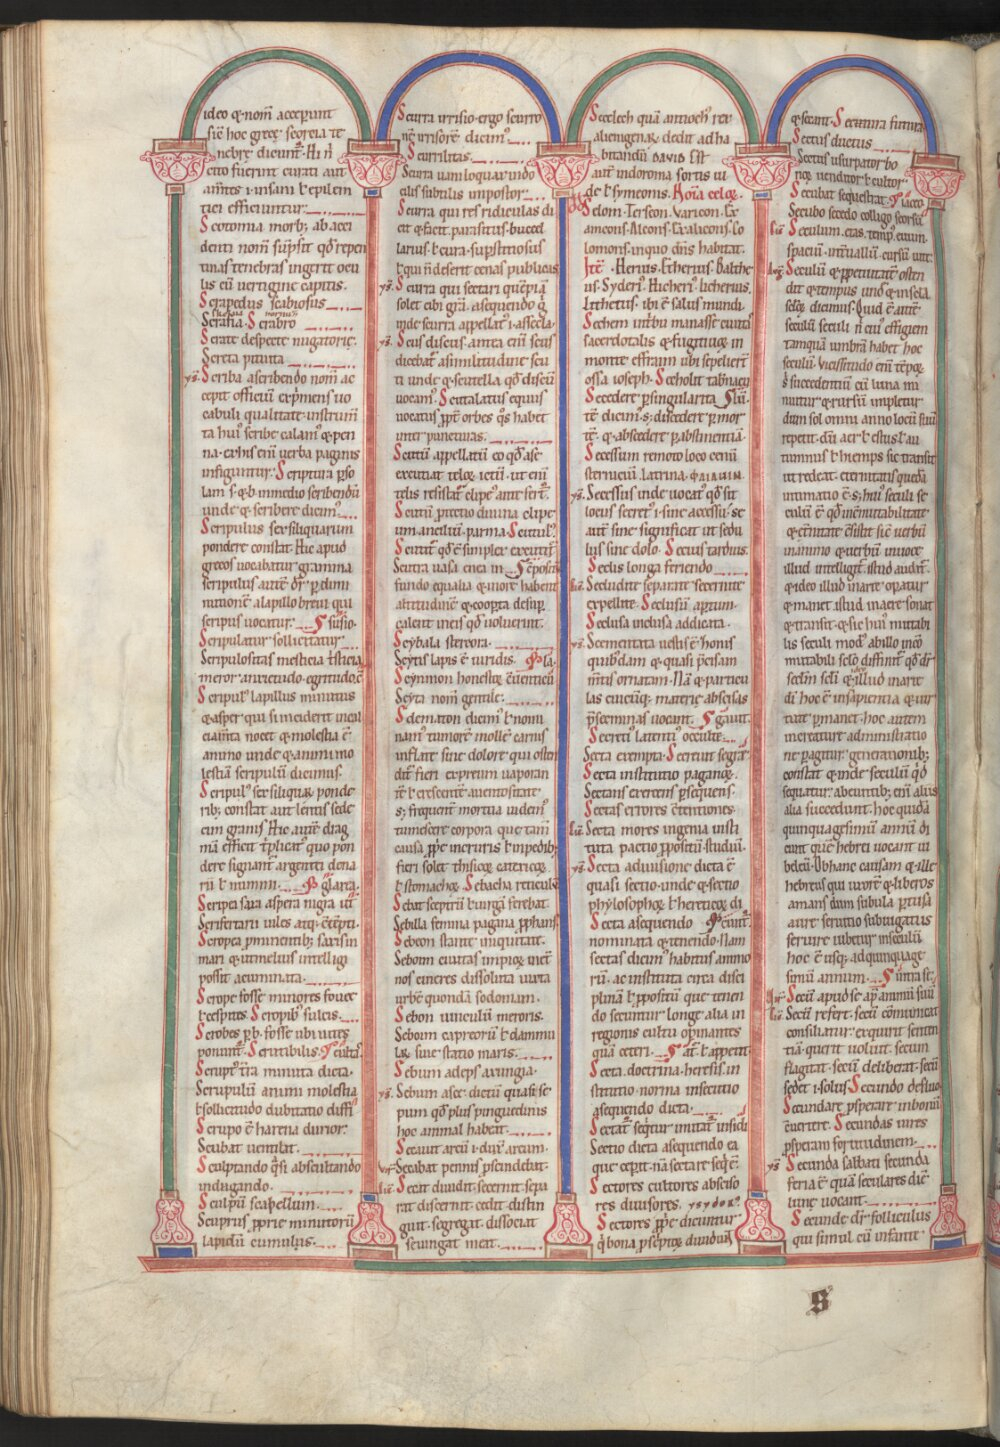 ideo & nom̄ acceꝑunt
sic̄ hoc grece scoteia te
nebrę dicunt᷑. Hi n̄
cito fuerint curati aut
am̄tes ⁊ insani ł epilem
tici efficiuntur.
Scotomia morb; ab acci
denti nom̄ sūpsit qd̄ repen
tinas tenebras ingerit ocu
lis cū uertigine capitis.
Scrapedus scabiosus
Scrafia. Scrabro
Scrate despecte nugatorię.
Screta pituita
Scriba a scribendo nom̄ ac
cepit officiū exp̄mens uo
cabuli qualitate. instrum̄
ta hui᷒ scribe calam᷒ & pen
na. ex his enī uerba paginis
infiguntur. Scriptura ꝑso
lam
unde & scribere dicim᷒
Scripulus sex siliquarum
pondere constat. Hic apud
grecos uocabatur gramma
scripulus autē dr̄ ꝑ dimi
nutionē a lapillo breui qui
scripus uocatur. susio.
Scripulatur sollicitatur
Scripulositas mesticia tsticia
meror anxietudo egritudo.
Scripul᷒ lapillus minutus
& asper qui si inciderit in cal
ciamta nocet & molestia ē
animo unde & animi mo
lestiā scripulū dicimus.
Scripul᷒ sex siliquę ponde
rib; constat aut lentis sede
cim granis. Hic autē drag
mā efficit t̄plicat᷒ quo pon
dere signant᷑ argentei dena
rii ł nummi. glarea.
Scripea saxa aspera nigra
Scrifertarii
Scropea p̄minentib; saxis in
mari & utmelius intelligi
possit acuminata.
Scrope fosse minores fouee
ł cespites. Scropib᷒ sulcis.
Scrobes ꝑ b. fosse ubi uites
ponunt᷑. Scrutibilis.
Scrupt̄ t̄ra minuta dicta.
Scrupulū animi molestia
ł sollicitudo dubitatio diffi
Scrupo ē harena durior.
Scubat uentilat.
Sculptando q̄si abscultando
indagando.
Sculpū scabellum.
Scuprus ꝓprie minutorū
lapidū cumulus.
Scurra irrisio. ergo scurro
nē irrisorē dicim᷒
Scurrilitas.
Scurra uaniloquax indo
cilis subtilis impostor
Scurra qui res ridiculas di
cit & facit. parasitus. buccel
larius. ł cura. sup̄stitiosus
ł qui n̄ deserit cenas publicas
Scurra qui sectari quēpiā
solet cibi gr̄a. a sequendo q̄
inde scurra appellat᷑. i. assecla.
Scus discus. antea enī scus
dicebat᷑ a similitudine scu
ti unde & scutella qd̄ discū
uocam᷒. Scutalatus equus
uocatus ꝓpt̄ orbes q̄s habet
inter puncturas.
Scutū appellatū eo qd̄ a se
excutiat teloꝝ ictū. ut enī
telis resistat᷑ clipe᷒ ante fert᷑.
Scutū ꝓtectio diuina clipe
um ancilū. parma. Scutul᷒
Scutū qd̄ ē simplex excutit᷑
Scutra uasa enea in
fundo equalia & inore habent
altitudinē & coopta desup
calent incis qd̄ uoluerint.
Scybala stercora.
Scytis lapis ē uiridis. 
Scymmon honestoꝝ cuentici
Scyta nom̄ gentile.
Sdematon dicim᷒ ł nomi
nam᷒ tumorē mollē carnis
inflate sine dolore qui osten
dit᷑ fieri exp̄reum uaporan
te ł crescente auentositate
s; frequent᷑ mortua uidem᷒
tumescere corpora que tam̄
causa ꝓprie in curis ł impedib;
fieri solet thisicoꝝ catericoꝝ
ł stomachoꝝ. Sebacha reticulū
Sebat sceptrū ł uirga ferebat.
Sebilla femina pagina ꝓphans
Sebeon stans iniquitate.
Seboim ciuitas impioꝝ inc̄
nos cineres dissoluta iuxta
urbē quondā sodomam.
Sebon iunculū meroris.
Seboim capreorū ł dammu
laꝝ siue statio maris.
Sebum adeps axungia.
Sebum a sue dictū quasi se
pum qd̄ plus pinguedinis
hoc animal habeat.
Secauit arcū. i. diuī. arcum.
Secabat pennis ꝑscindebat.
Secat diuidit. secernit. sepa
rat discernit. cedit. distin
guit. segregat. dissociat
seiungat meat.
Seelech quā antioch᷒ rex
alienigenaꝝ dedit ad ha
bitandū DAVID. Est
aut̄ in doroma sortis iu
de ł symeonis. Nōia celoꝝ.
Selom. Terseon. Varicon. Ex
ameons. Alcons. Exalicons. So
lomons. in quo dn̄s habitat.
Ite᷒. Herius. Etherius. Balthe
us. Syderi᷒. Hucheri᷒. Lucherius.
Lithetus. ibi ē salus mundi.
Sechem int̄bu manasse ciuita᷒
sacerdotalis & fugitiuoꝝ in
monte effraim ubi sepelier̄t
ossa ioseph. Secholit tabnacu
Secedere ꝑ singularita
tē dicim᷒. s; discedere ꝑ mor
tē. & abscedere ꝑ abstinentiā.
Secessum remoto loco cenū
sterniciū. latrina.
Secessus inde uocat᷒ qd̄ sit
locus secret᷒. i. sine accessu. se
aut̄ sine significat ut sedu
lus sine dolo. Secius tardius.
Secius longa feriendo
Secludite separate secernite
expellite. Seclusū aptum.
Seclusa inclusa addicata.
Scementata uestis ē homs
quibdam & quasi p̄cisam
m̄tis ornatam. Nā & particu
las cuiuscūq; materię abscisas
p̄seminas uocant. gaut.
Secreti᷒ latenti᷒ occulte.
Secta exempta. Secreuit segra᷒.
Secta institutio paganoꝝ.
Sectans exercens ꝑsequens.
Sectas errores ētentiones.
Secta mores ingenia insti
tuta pactio ꝓpositū studiū.
Secta a diuisione dicta ē
quasi sectio. unde & sectio
phylosophoꝝ ł hereticoꝝ di
Secta a sequendo cunt᷑.
nominata & tenendo. Nam
sectas dicim᷒ habitus animo
rū. ac instituta circa disci
plinā ł ꝓpositū que tenen
do secuntur longe alia in
regionis cultu opinantes
quā ceteri. ł appetit.
Secta. doctrina. heresis. in
stitutio. norma. insectuio
a sequendo dicta.
Sectat᷑ seq̄tur imitat᷑ insidi
Sectio dicta a sequendo ea
que cepit. nā sectare seq̄. ē.
Sectores cultores absciso
res diuisores. ysydor᷒.
Sectores ꝓpr̄e dicuntur
q̄ bona ꝑ septoꝝ diuidunt᷑
& secant. Secutura futura
Sectus diuetus
Sectus usurpator bo
noꝝ uenditor ł cultor.
Secubat sequestrat. iaceo.
Secubo secedo colligo seorsū
Seculum. etas. temp᷒. euum.
spacium. intuallū. cursū uite.
Seculū & ꝑpetuitatē osten
dit & tempus. unde & in sela
seloꝝ dicimus. Quid ē autē
seculū seculi n̄ ei᷒ effigiem
tamquā umbrā habet hoc
seculū. Vicissitudo enī tēpoꝝ
s succedentiū cū luna mi
nuitur & rursū impletur
dum sol omni anno locū suū
repetit. dū aer ł estus ł au
tumnus ł hiemps sic transit
ut redeat. eternitatis quedā
intimatio ē. s; hui᷒ seculi se
culū ē qd̄ incmutabilitate
& etn̄itate c̄sistit sic̄ uerbū
in animo & uerbū in uoce
illud intelligit᷑ istud audit᷑.
& ideo illud in arte opatur
& manet istud in aere sonat
& transit. & sic hui᷒ mutabi
lis seculi mod᷒ ab illo inc̄o
mutabili selo diffinit᷑ qd̄ dr̄
selm seli & illud in arte
di hoc ē in sapientia & uir
tute p̄manet. hoc autem
in creature administratio
ne ꝑagitur. generationib;
constat & inde seculū qd̄
sequatur. abeuntib; enī aliis
alia succedunt. hoc quidā
quinquagesimū annū di
cunt. quē hebrei uocant iu
beleū. Ob hanc causam & ille
hebreus qui uxorē & liberos
amans dum subula ꝑtusa
aure seruitio subiugatus
seruire iubetur in seculū
hoc ē usq; ad quinquage
simū annum. intra se.
Secū apud se aput animū suū
Secū refert. secū cōmunicat
consiliatur. exquirit senten
tiā. querit uoluit. secum
flagitat. secū deliberat. secū
sedet. i. solus. Secundo defluo
Secundare ꝓsperare in bonū
ēuertere. Secundas uires
ꝓsperam fortitudinem.
Secunda sabbati secunda
feria ē quā seculares diē
lunę uocant.
Secunde dr̄ folliculus
qui simul cū infante.
S